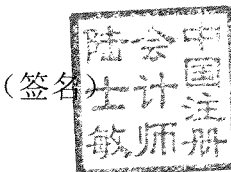 （签名）
中国注册
会计师
陆士敏